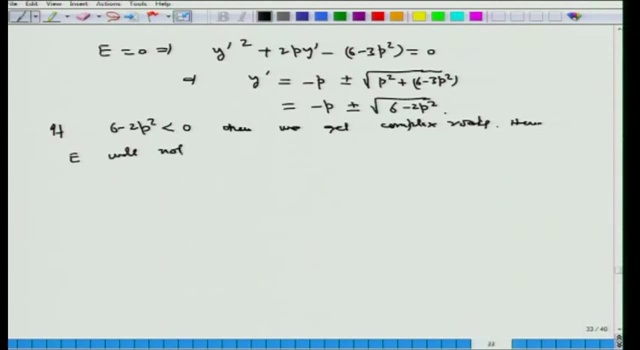 File Edit View Insert Actions Tools Help
E = 0 ⇒ y'² + 2py' − (6−3p²) = 0
⇒ y' = −p ± √(p² + (6−3p²))
= −p ± √(6−2p²).
If 6−2p² < 0 then we get complex roots. Then
E will not
33 / 40
33